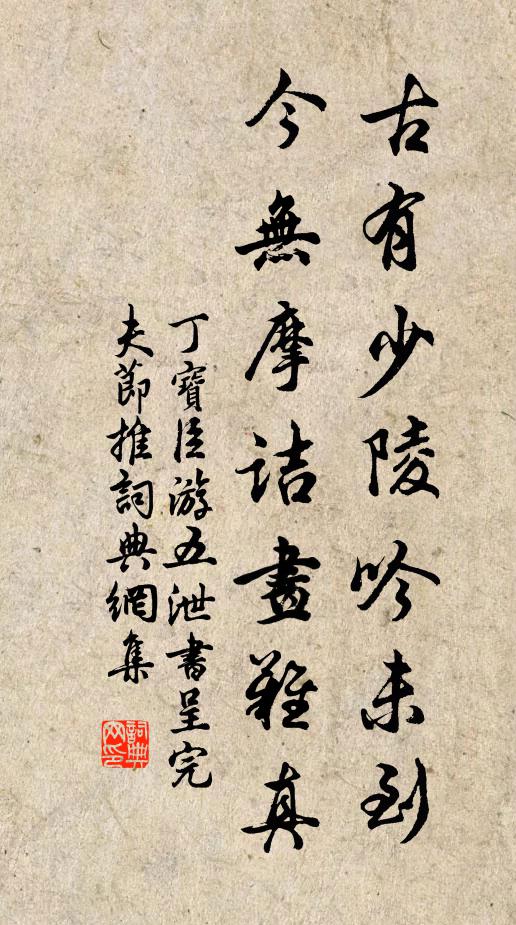 古有少陵吟未到
今無摩詰畫難真
丁寶臣游五泄書呈完
夫節推詞典網集
詞典網印